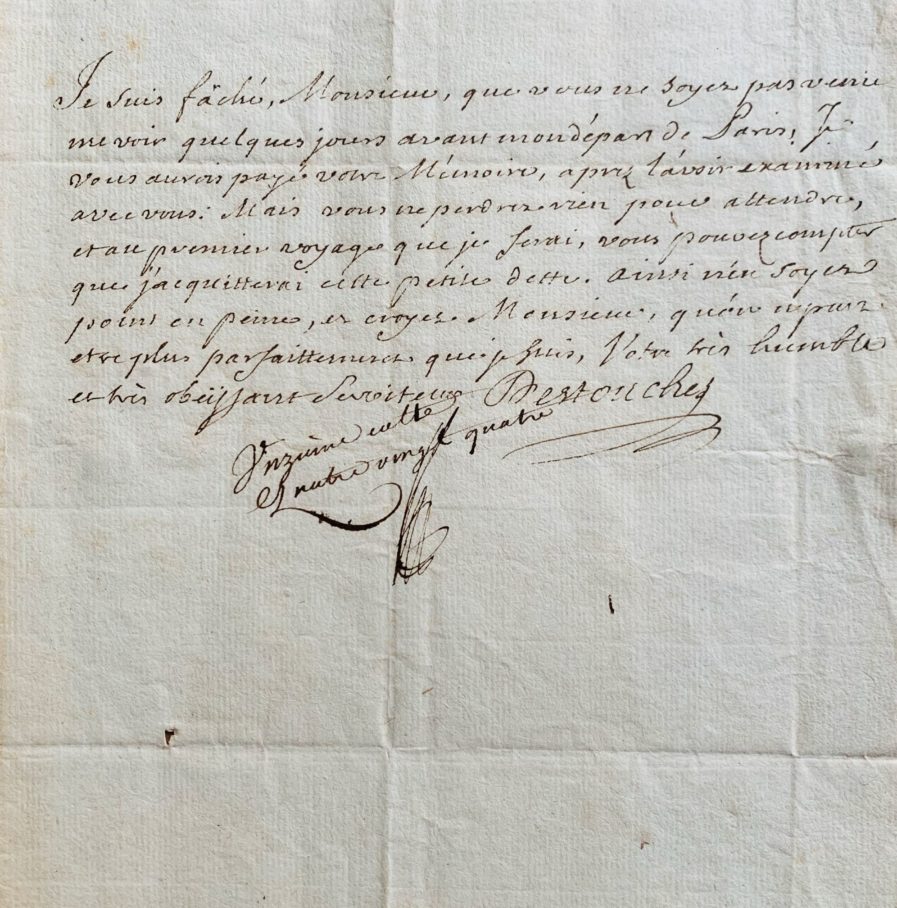 Je suis fâché, Monsieur, que vous ne soyez pas venu
me voir quelques jours avant mon départ de Paris; Je
vous aurois payé votre Mémoire, aprez l'avoir examiné
avec vous: Mais vous ne perdrez rien pour attendre,
et au premier voyage que je ferai, vous pouvez compter
que j'acquitterai cette petite dette. Ainsi n'en soyez
point en peine, et croyez Monsieur, qu'on ne peut
etre plus parfaittement que je suis, Votre très humble
et très obéissant Serviteur Destouches
Onzième cotte
Quatre vingt quatre